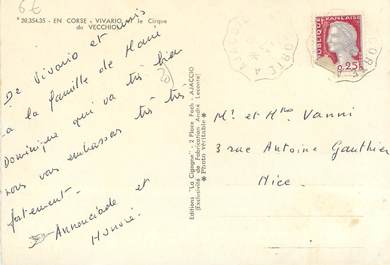 6€
* 20.354.35 - EN CORSE - VIVARIO le Cirque
du VECCHIO
De Vivario et unis
à la famille de
Dominique qui va très bien
nous vous embrassons très très
fortement -
Annonciade et
Honoré.
Editions "La Cigogne" - 2 Place Foch - AJACCIO
(Exclusivité de Fabrication André Leconte)
* Photo véritable *
REPUBLIQUE FRANÇAISE
0,25F
Mr et Mme Vanni
3 rue Antoine Gauthier
Nice.